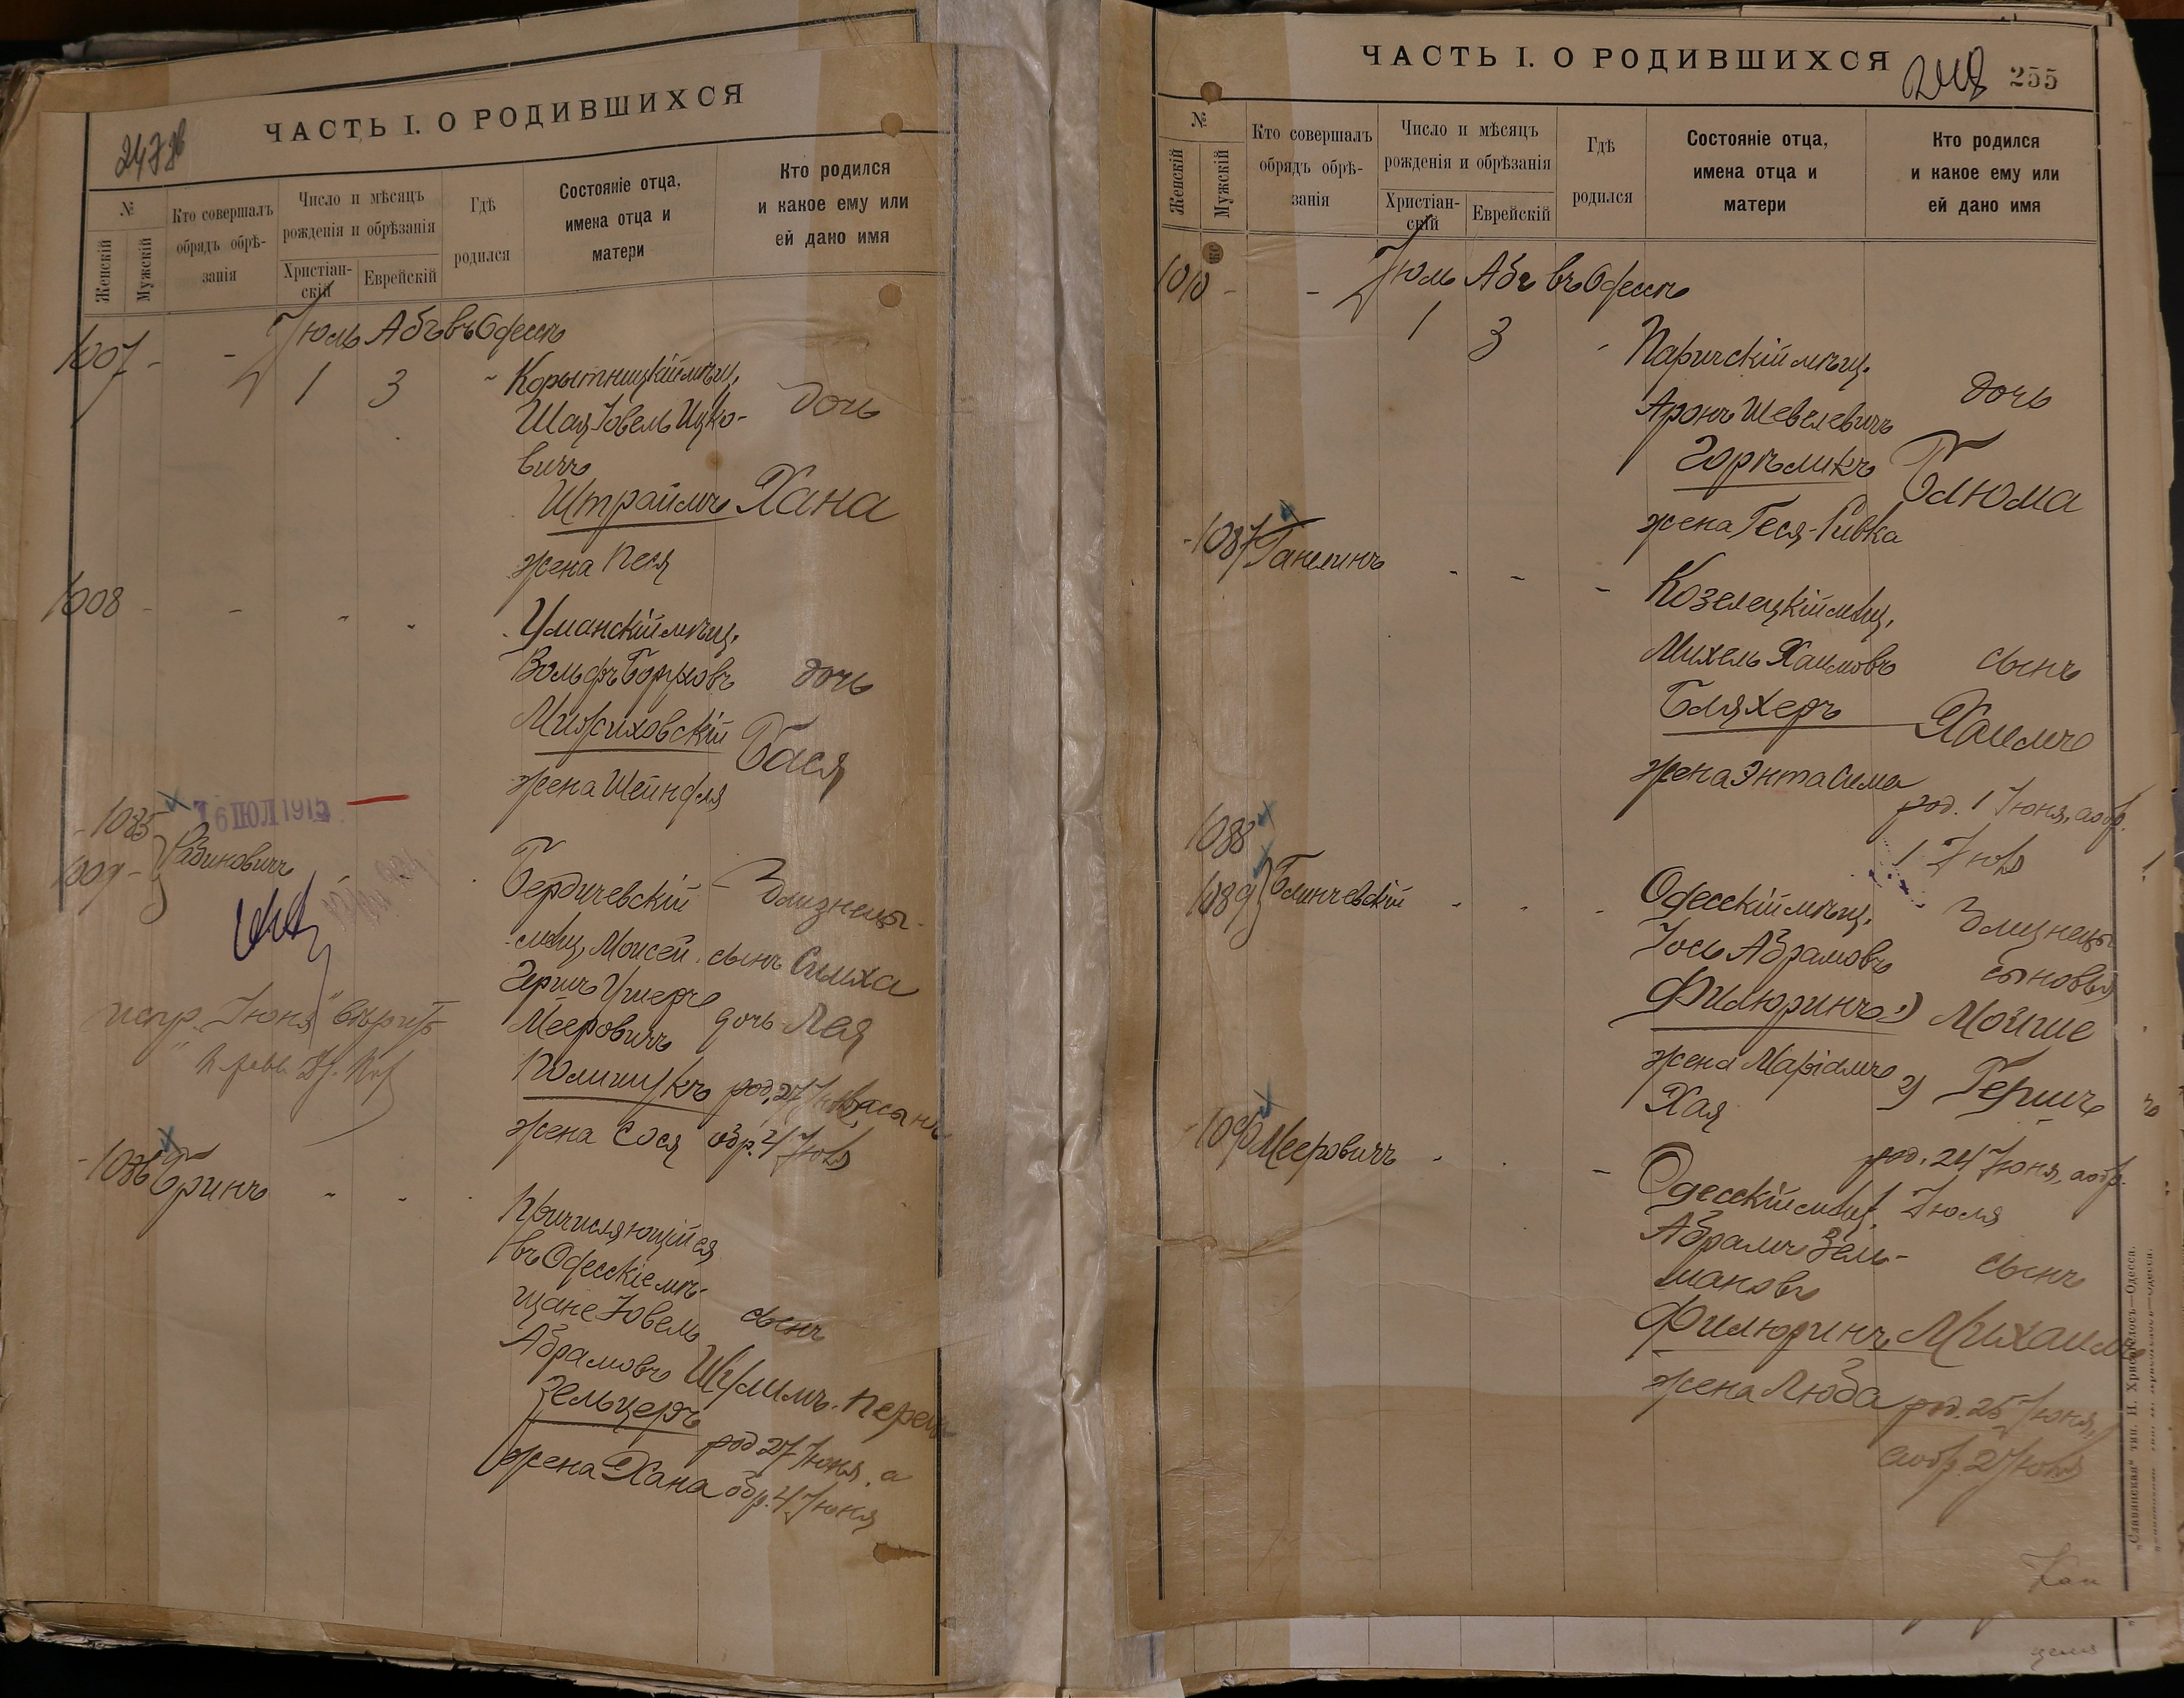 ЧАСТЬ I. О РОДИВШИХСЯ
№
Женскій
Мужскій
Кто совершалъ
обрядъ обрѣ-
занія
Число и мѣсяцъ
рожденія и обрѣзанія
Христіан-
скій
Еврейскій
Гдѣ
родился
Состояніе отца,
имена отца и
матери
Кто родился
и какое ему или
ей дано имя
1007 - - Іюль Абъ въ Одессѣ
1 3
Корытницкій мѣщ.
Шая Іовель Ицко-
вичъ
Штраймъ
жена Песя
дочь
Хана
1008 - -
Уманскій мѣщ.
Вольфъ Боруховъ
жена Шейндля
дочь
Бася
1085
1009 -
16 ІЮЛ 1915
Рабиновичъ
Бердичевскій
мѣщ. Мойсей
Гершъ Ушеръ
Мееровичъ
Полищукъ
жена Сося
Близнецы
сынъ Симха
дочь Лея
род. 27 Іюня, а сынъ
обр. 4 Іюля
испр. "Іюня" вѣрить
1086 Гринъ
Причисляющійся
въ Одесскіе мѣ-
щане Іовель
Абрамовъ
Зельцеръ
жена Хана
сынъ
Шулимъ-Перецъ
род 27 Іюня, а
обр. 4 Іюня
ЧАСТЬ I. О РОДИВШИХСЯ
255
№
Женскій
Мужскій
Кто совершалъ
обрядъ обрѣ-
занія
Число и мѣсяцъ
рожденія и обрѣзанія
Христіан-
скій
Еврейскій
Гдѣ
родился
Состояніе отца,
имена отца и
матери
Кто родился
и какое ему или
ей дано имя
1010 - - Іюль Абъ въ Одессѣ
1 3
Паричскій мѣщ.
Аронъ Шевелевичъ
Горѣликъ
жена Геся-Ривка
дочь
Блюма
1087 Ганелинъ
Козелецкій мѣщ.
Михель Хаимовъ
Бляхеръ
жена Энта Сима
сынъ
Хаимъ
род. 1 Іюня, а обр.
1 Іюля
1088
1089 Блинчевскій
Одесскій мѣщ.
Іось Абрамовъ
Филюринъ
жена Маріамъ
Хая
Близнецы
сыновья
1) Мойше
2) Гершъ
род. 24 Іюня, а обр.
1 Іюля
1090 Мееровичъ
Одесскій мѣщ.
Абрамъ Зель-
мановъ
Филюринъ
жена Люба
сынъ
Михаилъ
род. 25 Іюня,
а обр 2 Іюля
„Славянская" тип. Н. Хрисогелосъ—Одесса.